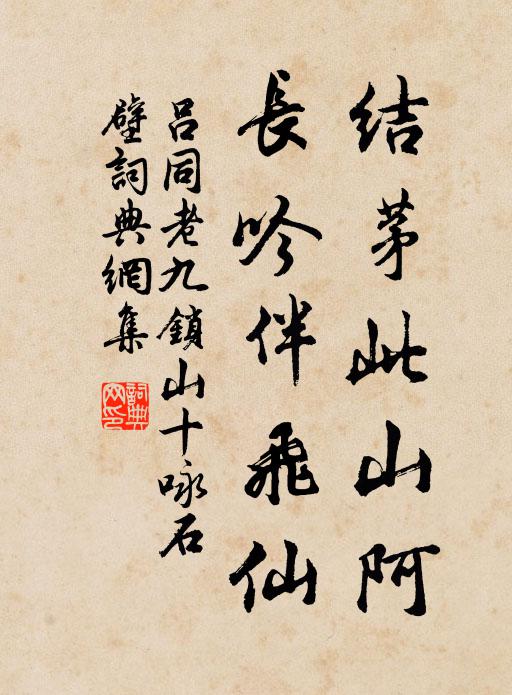 結茅此山阿
長吟伴飛仙
呂同老九鎖山十咏石
壁詞典網集
詞典網印